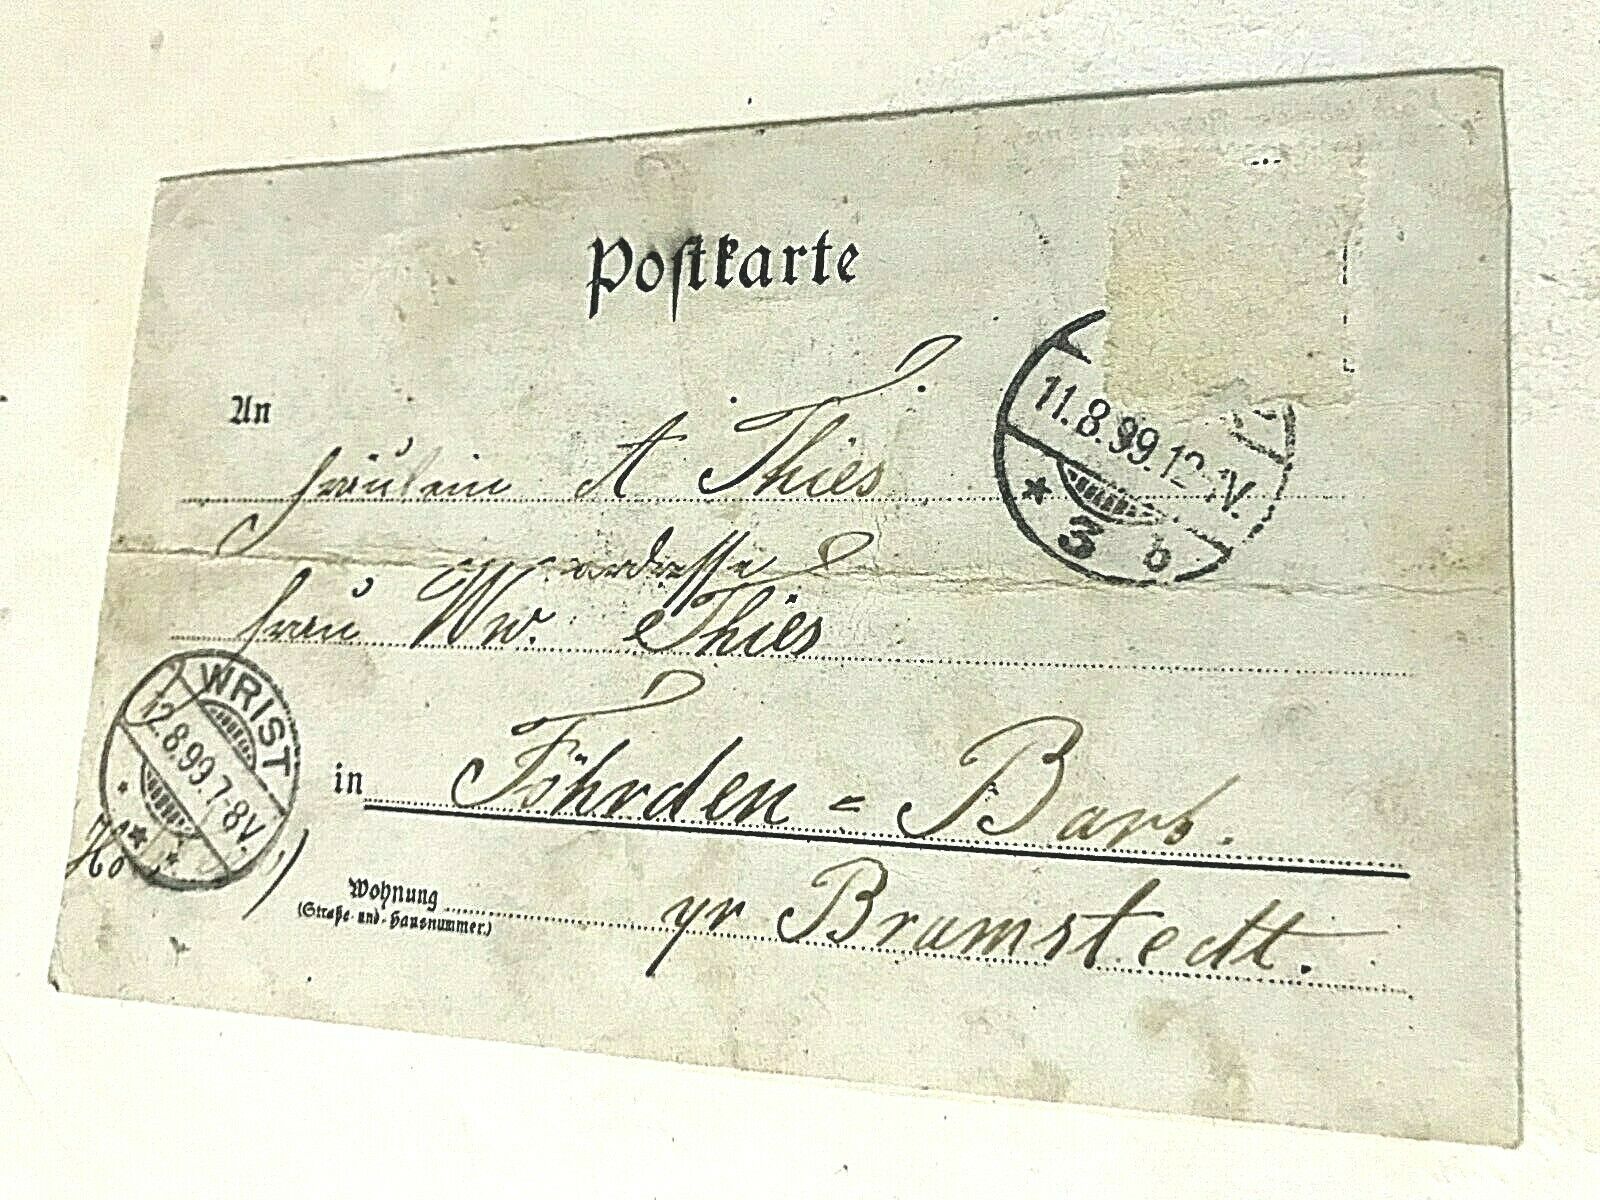 Postkarte
An
Fräulein A Thies.
adresse
Frau Ww. Thies
in Föhrden = Barl.
Wohnung
(Straße und Hausnummer.)
pr Bramstedt.
11.8.99.12-1V.
* 3 b
WRIST
12.8.99.7-8V.
* * *